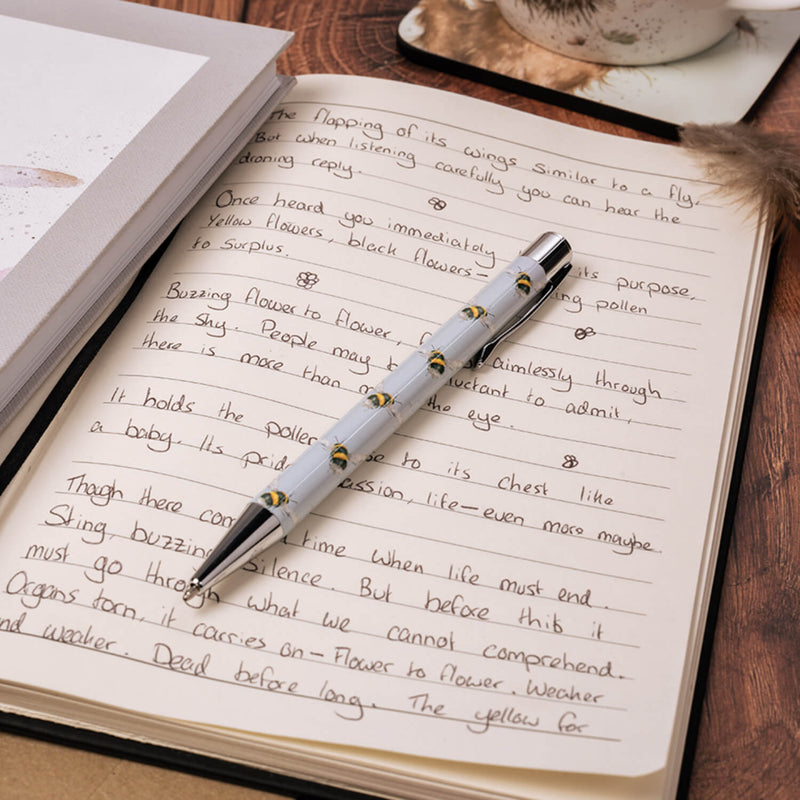 The flapping of its wings similar to a fly.
But when listening carefully you can hear the
droning reply.
Once heard you immediately its purpose,
Yellow flowers, black flowers- pollen
to surplus.
Buzzing flower to flower, aimlessly through
the sky. People may to admit,
there is more than the eye.
It holds the pollen to its chest like
a baby. Its life-even more maybe.
Though there time when life must end.
Sting, buzzing silence. But before this it
must go through what we cannot comprehend.
Organs torn, it carries on-Flower to flower. Weaker
and weaker. Dead before long. The yellow for